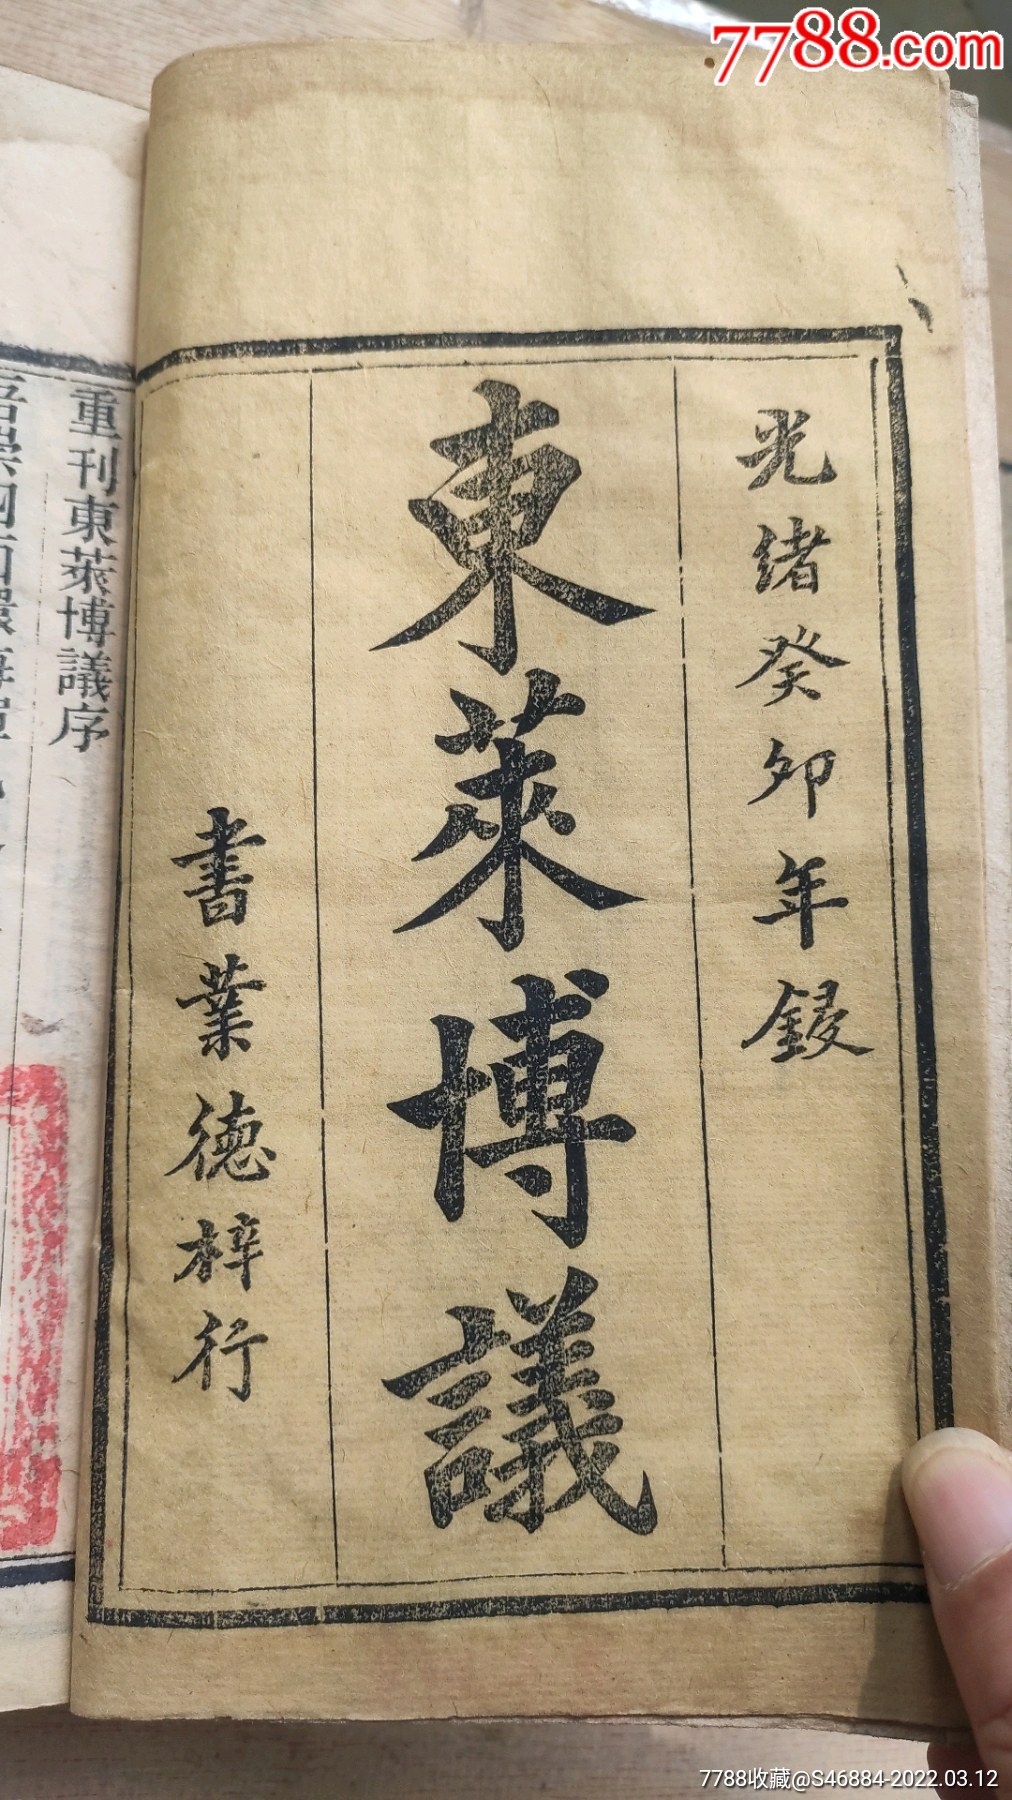 7788.com
光緒癸卯年鋟
東萊博議
書業德梓行
重刊東萊博議序
7788收藏@S46884-2022.03.12